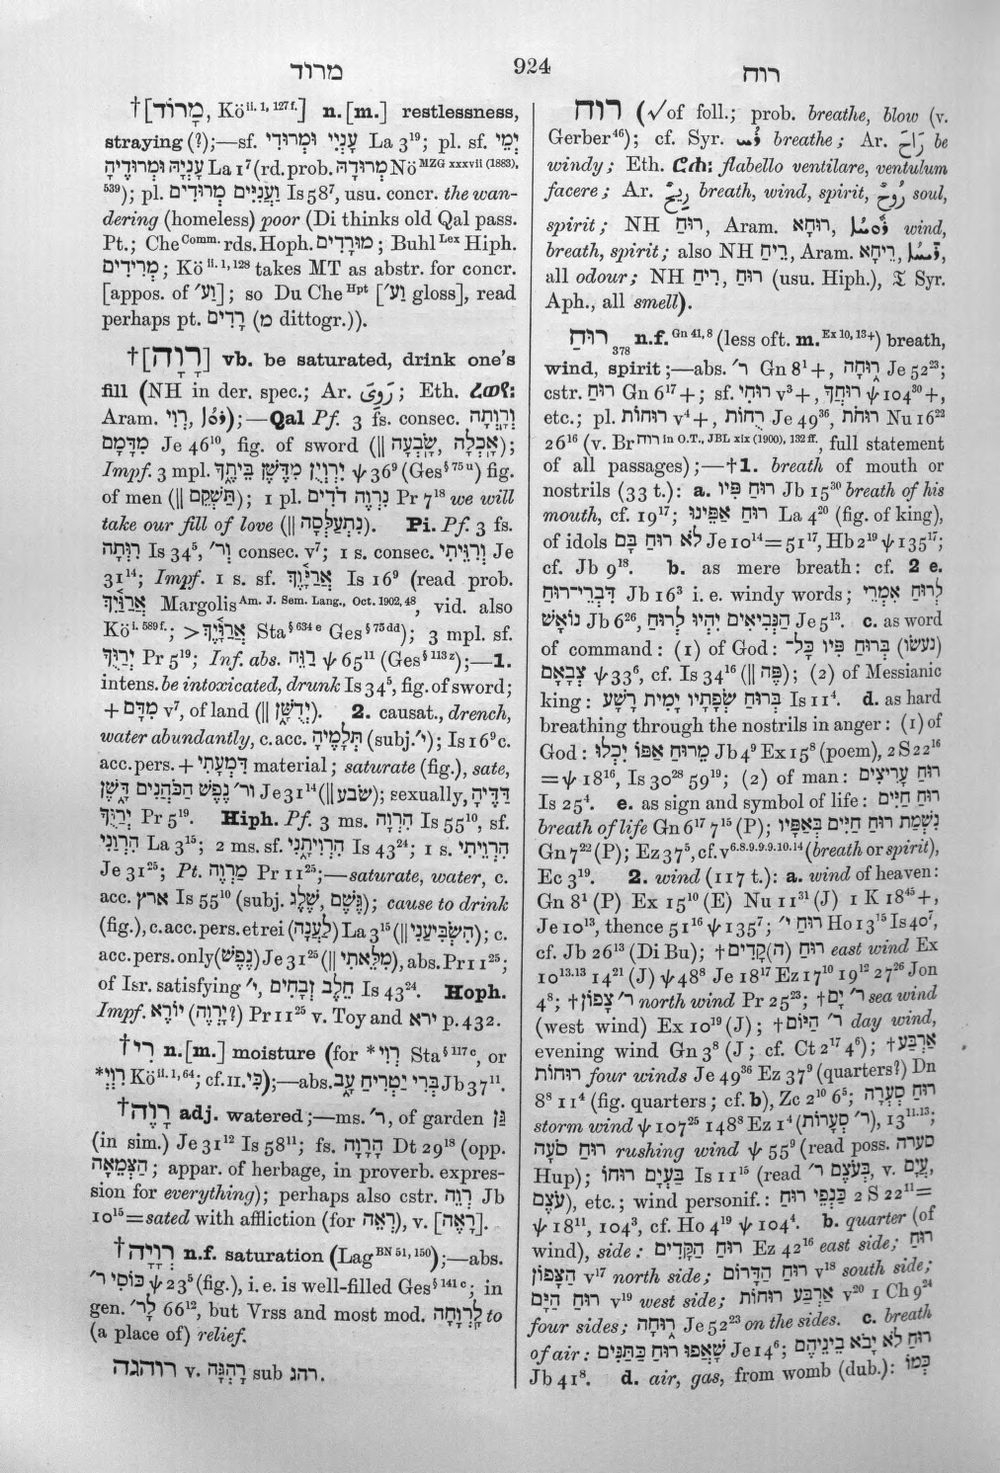 מרוד
924
רוח
†[מָרוֹד, Kö ii. 1, 127 f.] n.[m.] restlessness,
straying (?);—sf. עָנְיִי וּמְרוּדִי La 3¹⁹; pl. sf. יְמֵי
עָנְיָהּ וּמְרוּדֶיהָ La 1⁷ (rd. prob. מְרוּדָהּ Nö MZG xxxvii (1883),
539); pl. וַעֲנִיִּים מְרוּדִים Is 58⁷, usu. concr. the wan-
dering (homeless) poor (Di thinks old Qal pass.
Pt.; Che Comm. rds. Hoph. מוּרָדִים; Buhl Lex Hiph.
מְרִידִים; Kö ii. 1, 128 takes MT as abstr. for concr.
[appos. of וַעֲ׳]; so Du Che Hpt [וַעֲ׳ gloss], read
perhaps pt. רָדִים (מ dittogr.)).
†[רָוָה] vb. be saturated, drink one's
fill (NH in der. spec.; Ar. رَوِىَ; Eth.
Aram. רְוִי,);—Qal Pf. 3 fs. consec. וְרָוְתָה
מִדָּמָם Je 46¹⁰, fig. of sword (‖ אָכְלָה, שָׂבְעָה);
Impf. 3 mpl. יִרְוְיֻן מִדֶּשֶׁן בֵּיתֶךָ ψ 36⁹ (Ges § 75 u) fig.
of men (‖ תַּשְׁקֵם); 1 pl. נִרְוֶה דֹדִים Pr 7¹⁸ we will
take our fill of love (‖ נִתְעַלְּסָה). Pi. Pf. 3 fs.
רִוְּתָה Is 34⁵, וְר׳ consec. v⁷; 1 s. consec. וְרִוֵּיתִי Je
31¹⁴; Impf. 1 s. sf. אֲרַיָּוֶךְ Is 16⁹ (read prob.
אֲרַוָּיֶךְ Margolis Am. J. Sem. Lang., Oct. 1902, 48, vid. also
Kö i. 589 f.; > אֲרַוֶּיךָ Sta § 634 e Ges § 75 dd); 3 mpl. sf.
יְרַוֻּךָ Pr 5¹⁹; Inf. abs. רַוֵּה ψ 65¹¹ (Ges § 113 z);—1.
intens. be intoxicated, drunk Is 34⁵, fig. of sword;
+ מִדָּם v⁷, of land (‖ יְדֻשָּׁן). 2. causat., drench,
water abundantly, c. acc. תְּלָמֶיהָ (subj. י׳); Is 16⁹ c.
acc. pers. + דִּמְעָתִי material; saturate (fig.), sate,
ור׳ נֶפֶשׁ הַכֹּהֲנִים דָּשֶׁן Je 31¹⁴ (‖ שׂבע); sexually, דַּדֶּיהָ
יְרַוֻּךָ Pr 5¹⁹. Hiph. Pf. 3 ms. הִרְוָה Is 55¹⁰, sf.
הִרְוַנִי La 3¹⁵; 2 ms. sf. הִרְוִיתָנִי Is 43²⁴; 1 s. הִרְוֵיתִי
Je 31²⁵; Pt. מַרְוֶה Pr 11²⁵;—saturate, water, c.
acc. ארץ Is 55¹⁰ (subj. גֶּשֶׁם, שֶׁלֶג); cause to drink
(fig.), c. acc. pers. et rei (לַעֲנָה) La 3¹⁵ (‖ הִשְׂבִּיעַנִי); c.
acc. pers. only (נֶפֶשׁ) Je 31²⁵ (‖ מִלֵּאתִי), abs. Pr 11²⁵;
of Isr. satisfying י׳, חֵלֶב זְבָחִים Is 43²⁴. Hoph.
Impf. יוֹרֶא (יָרְוֶה?) Pr 11²⁵ v. Toy and ירא p. 432.
†רִי n.[m.] moisture (for *רְוִי Sta § 117 c, or
*רִוְי Kö ii. 1, 64; cf. II. כִּי);—abs. בְּרִי יַטְרִיחַ עָב Jb 37¹¹.
†רָוֶה adj. watered;—ms. ר׳, of garden גַּן
(in sim.) Je 31¹² Is 58¹¹; fs. הָרָוָה Dt 29¹⁸ (opp.
הַצְּמֵאָה; appar. of herbage, in proverb. expres-
sion for everything); perhaps also cstr. רְוֵה Jb
10¹⁵ = sated with affliction (for רְאֵה), v. [רָאֶה].
†רְוָיָה n.f. saturation (Lag BN 51, 150);—abs.
כּוֹסִי ר׳ ψ 23⁵ (fig.), i.e. is well-filled Ges § 141 c; in
gen. לָר׳ 66¹², but Vrss and most mod. לָרְוָחָה to
(a place of) relief.
רוהגה v. רָהְגָּה sub רהג.
רוח (√ of foll.; prob. breathe, blow (v.
Gerber 46); cf. Syr. breathe; Ar. رَاحَ be
windy; Eth. flabello ventilare, ventulum
facere; Ar. رِيحٌ breath, wind, spirit, رُوحٌ soul,
spirit; NH רוּחַ, Aram. רוּחָא, wind,
breath, spirit; also NH רֵיחַ, Aram. רֵיחָא,
all odour; NH רֵיחַ, רוּחַ (usu. Hiph.), 𝔗 Syr.
Aph., all smell).
רוּחַ 378 n.f. Gn 41, 8 (less oft. m. Ex 10, 13+) breath,
wind, spirit;—abs. ר׳ Gn 8¹ +, רֽוּחָה Je 52²³;
cstr. רוּחַ Gn 6¹⁷ +; sf. רוּחִי v³ +, רוּחֲךָ ψ 104³⁰ +,
etc.; pl. רוּחוֹת v⁴ +, רֻחוֹת Je 49³⁶, רוּחֹת Nu 16²²
26¹⁶ (v. Br רוּחַ in O.T., JBL xix (1900), 132 ff., full statement
of all passages);—†1. breath of mouth or
nostrils (33 t.): a. רוּחַ פִּיו Jb 15³⁰ breath of his
mouth, cf. 19¹⁷; רוּחַ אַפֵּינוּ La 4²⁰ (fig. of king),
of idols לֹא רוּחַ בָּם Je 10¹⁴ = 51¹⁷, Hb 2¹⁹ ψ 135¹⁷;
cf. Jb 9¹⁸. b. as mere breath: cf. 2 e.
דִּבְרֵי־רוּחַ Jb 16³ i. e. windy words; לְרוּחַ אִמְרֵי
נוֹאָשׁ Jb 6²⁶, הַנְּבִיאִים יִהְיוּ לְרוּחַ Je 5¹³. c. as word
of command: (1) of God: בְּרוּחַ פִּיו כָּל־ (נעשׂו)
צְבָאָם ψ 33⁶, cf. Is 34¹⁶ (‖ פֶּה); (2) of Messianic
king: בְּרוּחַ שְׂפָתָיו יָמִית רָשָׁע Is 11⁴. d. as hard
breathing through the nostrils in anger: (1) of
God: מֵרוּחַ אַפּוֹ יִכְלוּ Jb 4⁹ Ex 15⁸ (poem), 2 S 22¹⁶
= ψ 18¹⁶, Is 30²⁸ 59¹⁹; (2) of man: רוּחַ עָרִיצִים
Is 25⁴. e. as sign and symbol of life: רוּחַ חַיִּים
breath of life Gn 6¹⁷ 7¹⁵ (P); נִשְׁמַת רוּחַ חַיִּים בְּאַפָּיו
Gn 7²² (P); Ez 37⁵, cf. v 6.8.9.9.9.10.14 (breath or spirit),
Ec 3¹⁹. 2. wind (117 t.): a. wind of heaven:
Gn 8¹ (P) Ex 15¹⁰ (E) Nu 11³¹ (J) 1 K 18⁴⁵ +,
Je 10¹³, thence 51¹⁶ ψ 135⁷; רוּחַ י׳ Ho 13¹⁵ Is 40⁷,
cf. Jb 26¹³ (Di Bu); †רוּחַ (ה)קָדִים east wind Ex
10 13.13 14²¹ (J) ψ 48⁸ Je 18¹⁷ Ez 17¹⁰ 19¹² 27²⁶ Jon
4⁸; †ר׳ צָפוֹן north wind Pr 25²³; †ר׳ יָם sea wind
(west wind) Ex 10¹⁹ (J); †ר׳ הַיּוֹם day wind,
evening wind Gn 3⁸ (J; cf. Ct 2¹⁷ 4⁶); †אַרְבַּע
רוּחוֹת four winds Je 49³⁶ Ez 37⁹ (quarters?) Dn
8⁸ 11⁴ (fig. quarters; cf. b), Zc 2¹⁰ 6⁵; רוּחַ סְעָרָה
storm wind ψ 107²⁵ 148⁸ Ez 1⁴ (ר׳ סְעָרוֹת), 13 11.13;
רוּחַ סֹעָה rushing wind ψ 55⁹ (read poss. סערה
Hup); בַּעְיָם רוּחוֹ Is 11¹⁵ (read בְּעֹצֶם ר׳, v. עֲיָם,
עֹצֶם), etc.; wind personif.: כַּנְפֵי רוּחַ 2 S 22¹¹ =
ψ 18¹¹, 104³, cf. Ho 4¹⁹ ψ 104⁴. b. quarter (of
wind), side: רוּחַ הַקָּדִים Ez 42¹⁶ east side; רוּחַ
הַצָּפוֹן v¹⁷ north side; רוּחַ הַדָּרוֹם v¹⁸ south side;
רוּחַ הַיָּם v¹⁹ west side; אַרְבַּע רוּחוֹת v²⁰ 1 Ch 9²⁴
four sides; רֽוּחָה Je 52²³ on the sides. c. breath
of air: שָׁאֲפוּ רוּחַ כַּתַּנִּים Je 14⁶; רוּחַ לֹא יָבֹא בֵינֵיהֶם
Jb 41⁸. d. air, gas, from womb (dub.): כְּמוֹ